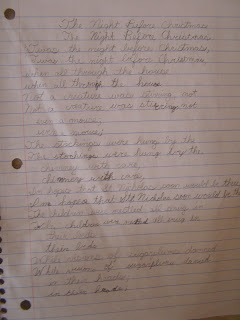 The Night Before Christmas
The Night Before Christmas
'Twas the night before Christmas,
'Twas the night before Christmas
when all through the house
when all through the house
Not a creature was stirring, not
Not a creature was stirring not
even a mouse;
even a mouse;
The stockings were hung by the
The stockings were hung by the
chimney with care,
chimney with care,
In hopes that St Nicholas soon would be there
In hopes that St Nicholas soon would be
The children were nestled all snug in
The children were nestled all snug in
their beds
their beds
While visions of sugarplums danced
While visions of sugarplums danced
in their heads;
in their heads;